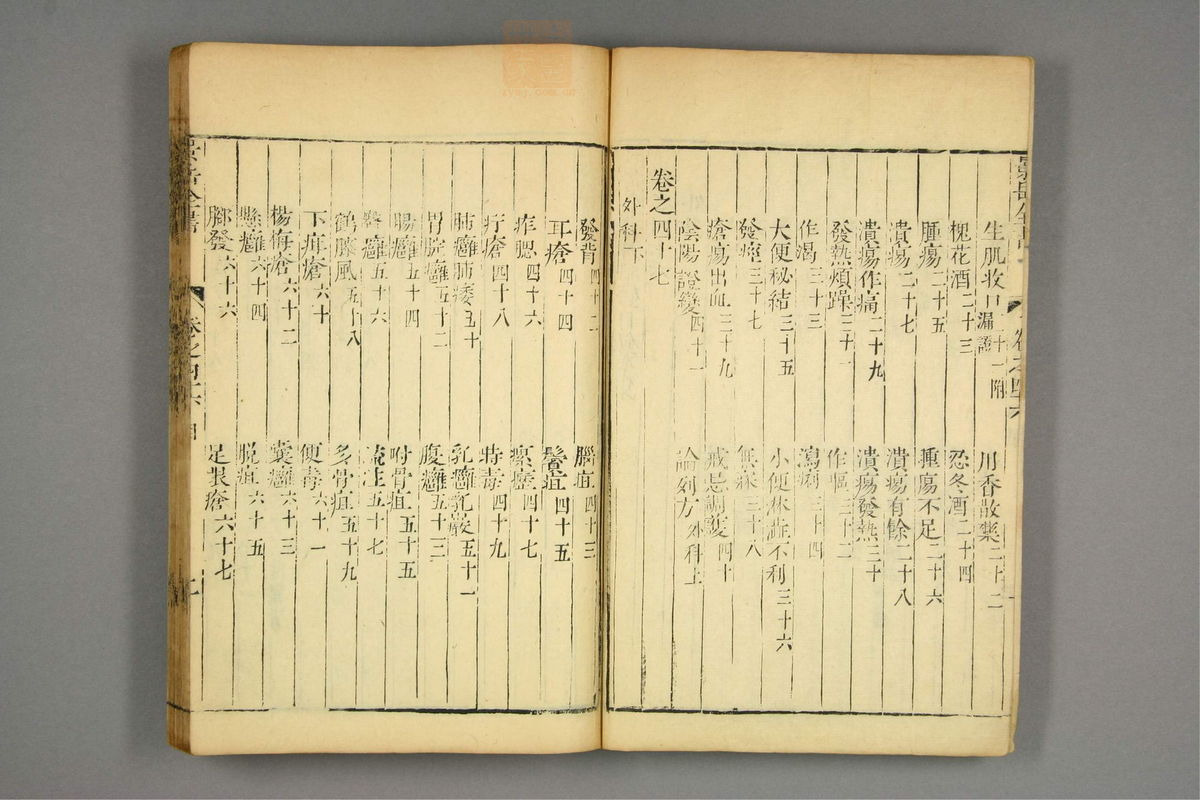 生肌收口二十一附漏證
川香散藥二十二
槐花酒二十三
忍冬酒二十四
腫瘍二十五
腫瘍不足二十六
潰瘍二十七
潰瘍有餘二十八
潰瘍作痛二十九
潰瘍發熱三十
發熱煩躁三十一
作嘔三十二
作渴三十三
瀉痢三十四
大便秘結三十五
小便淋澁不利三十六
發痙三十七
無寐三十八
瘡瘍出血三十九
戒忌調護四十
陰陽證變四十一
論列方外科上
卷之四十七
外科下
發背四十二
腦疽四十三
耳瘡四十四
鬢疽四十五
痄腮四十六
瘰癧四十七
疔瘡四十八
時毒四十九
肺癰肺痿五十
乳癰乳巖五十一
胃脘癰五十二
腹癰五十三
腸癰五十四
附骨疽五十五
臀癰五十六
流注五十七
鶴膝風五十八
多骨疽五十九
下疳瘡六十
便毒六十一
楊梅瘡六十二
囊癰六十三
懸癰六十四
脫疽六十五
腳發六十六
足跟瘡六十七
卷之四十六 目